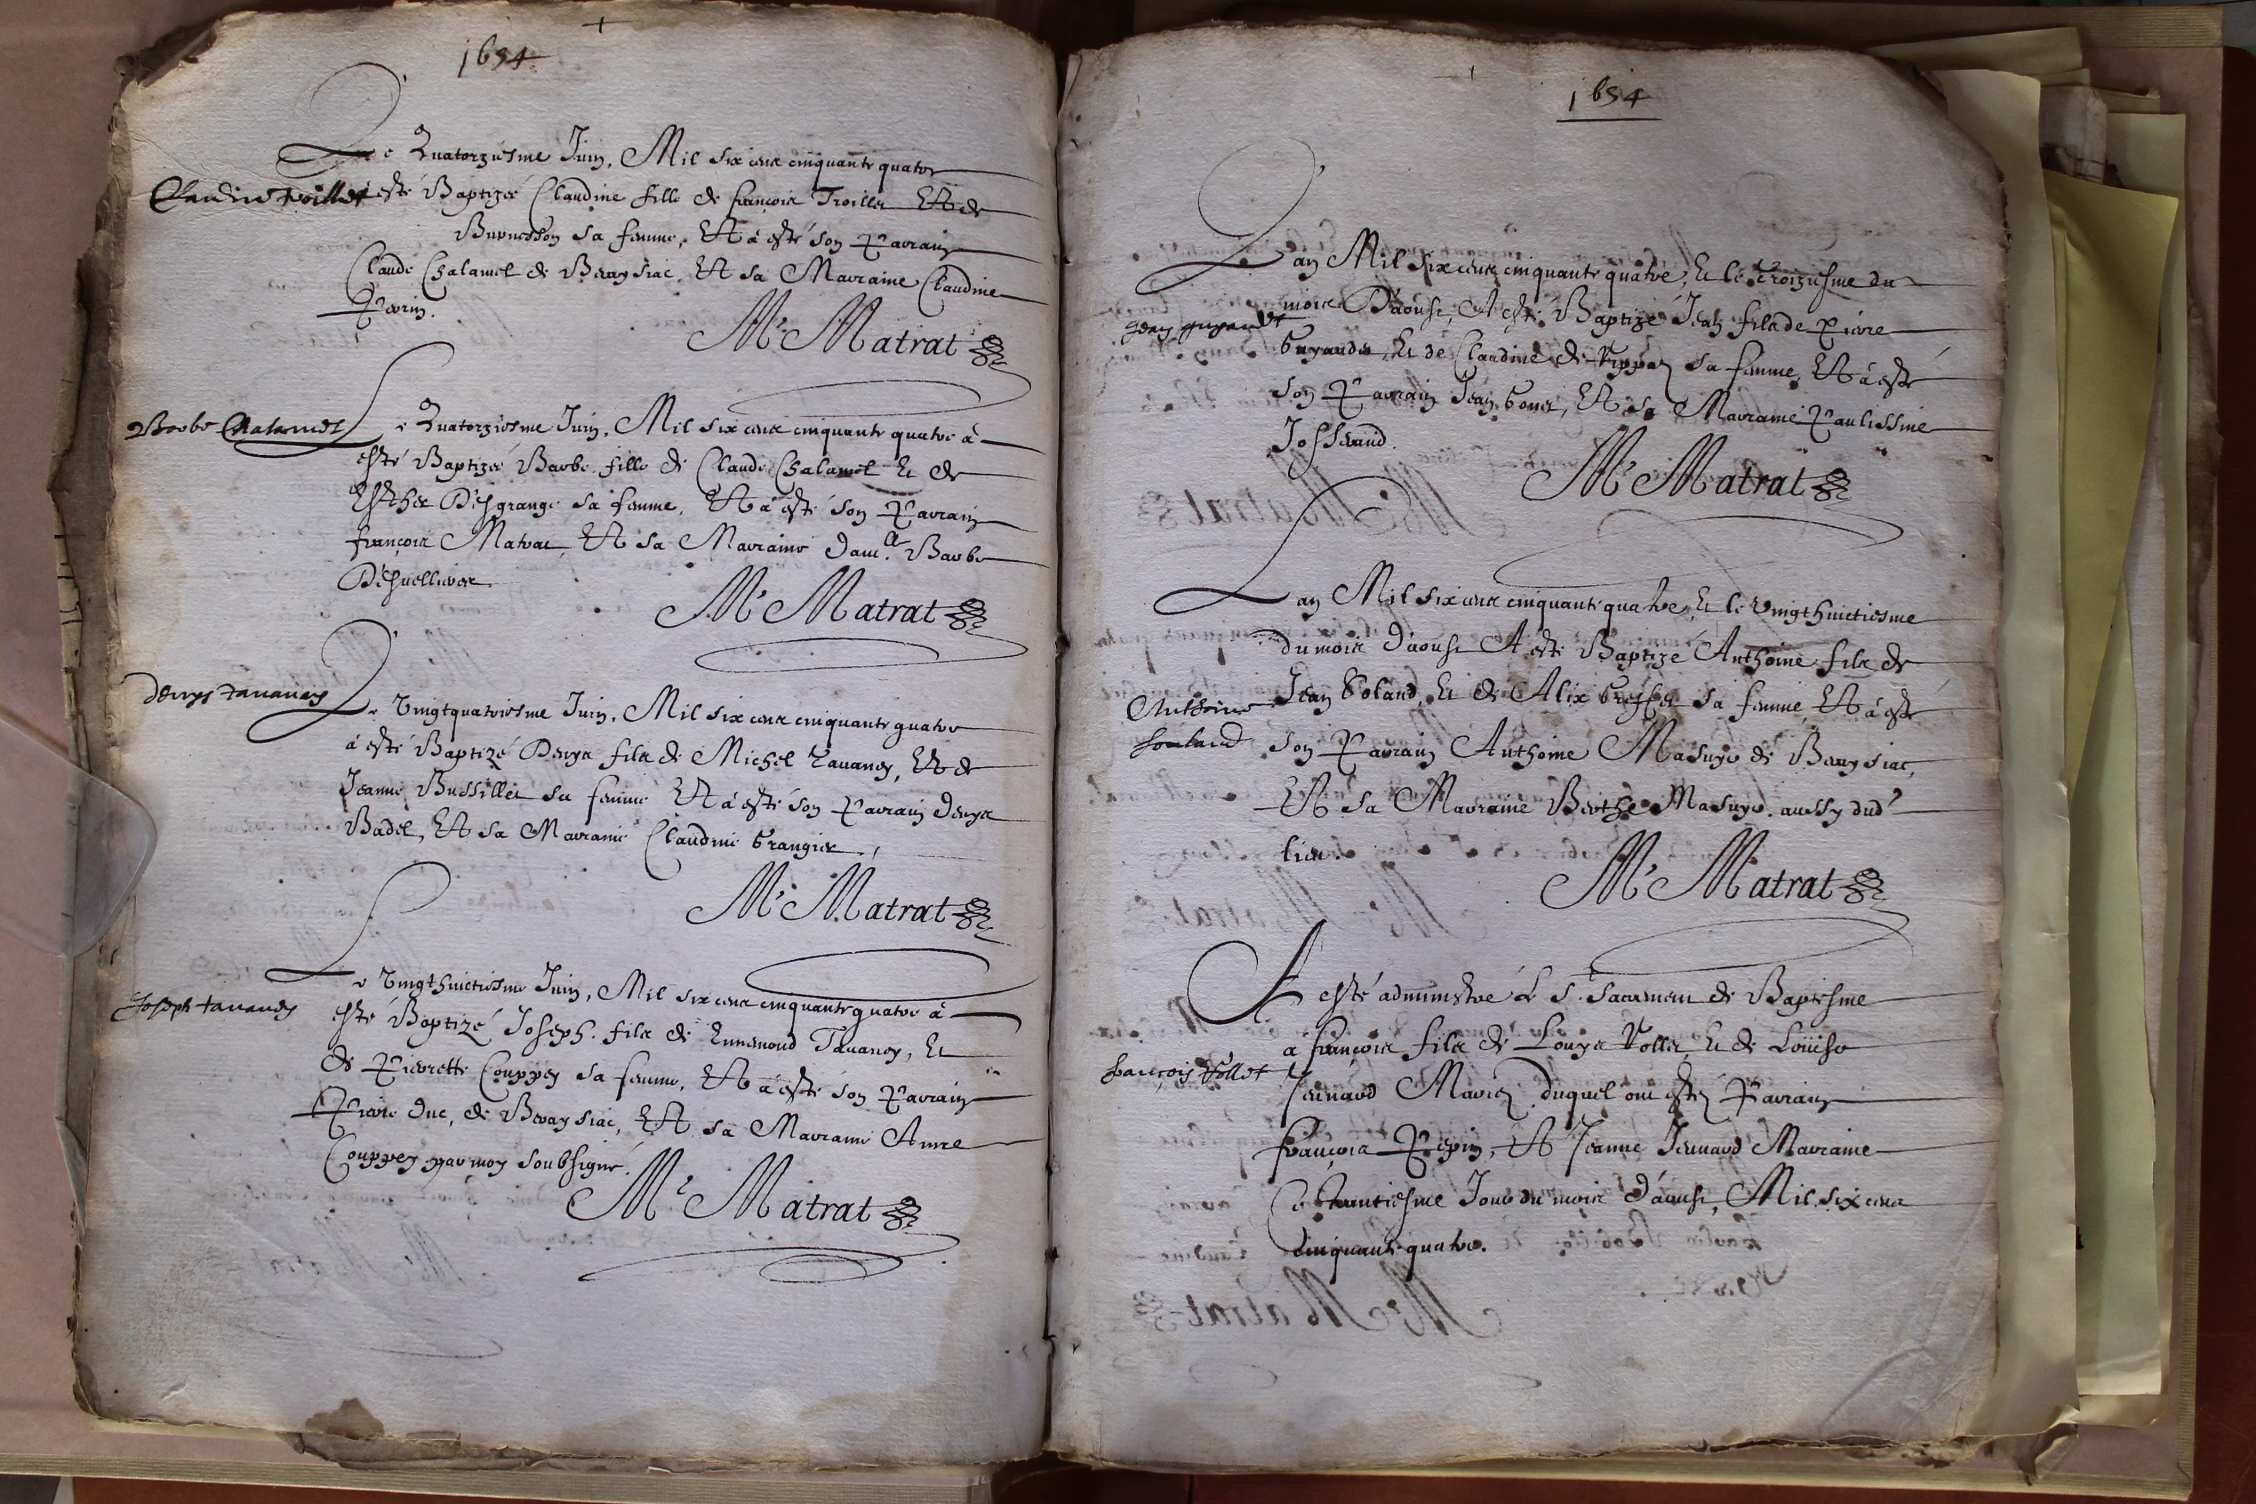 1654
Le Quatorziesme Juin, Mil six cens cinquante quatre
Claudine troillet
esté Baptizée Claudine fille de françois Troillet Et de
sa femme, Et à esté son Parrain
Claude Chalamel de Bevaysiac, Et sa Marraine Claudine
Perrin.
Mr Matrat
Barbe Chalamel
Le Quatorziesme Juin, Mil six cens cinquante quatre à
esté Baptizée Barbe fille de Claude Chalamel Et de
Esther Desgrange sa femme, Et à esté son Parrain
françois Matrat, Et sa Marraine dam.lle Barbe
Mr Matrat
denys tavaney
Le Vingtquatriesme Juin, Mil six cens cinquante quatre
à esté Baptizé Denys fils de Michel Tavaney, Et de
Jeanne Bussillet sa femme Et à esté son Parrain denys
Badel, Et sa Marraine Claudine Grangier,
Mr Matrat
Joseph tavaney
Le Vingthuictiesme Juin, Mil six cens cinquante quatre à
esté Baptizé Joseph fils de Ennemond Tavaney, Et
de Pierrette Couppey sa femme, Et à esté son Parrain
Pierre duc, de Bevaysiac, Et sa Marraine Anne
Couppey par moy soubsigné.
Mr Matrat
1654
Lan Mil six cens cinquante quatre, Et le troiziesme du
Jean guyandet
mois D'aoust, A esté Baptizé Jean fils de Pierre
Guyandet, Et de Claudine de sa femme, Et à esté
son Parrain Jean Gonet, Et sa Marraine Paulissine
Josserand.
Mr Matrat
Lan Mil six cens cinquante quatre, Et le vingthuictiesme
du mois d'aoust A esté Baptizé Anthoine fils de
Anthoine
Jean Soland, Et de Alix sa femme, Et à esté
soland
son Parrain Anthoine Masuyo de Bevaysiac,
Et sa Marraine Berthe Masuyo. aussy dud.
lieu.
Mr Matrat
A esté administré le St. Sacrement de Baptesme
à françois fils de Louys Vollet, Et de Louise
françois Vollet
Jeunard Mariez duquel ont estez Parrain
françois Pepin, Et Jeanne Jeunard Marraine
Ce trentiesme Jour du mois d'aoust, Mil six cens
cinquante quatre.